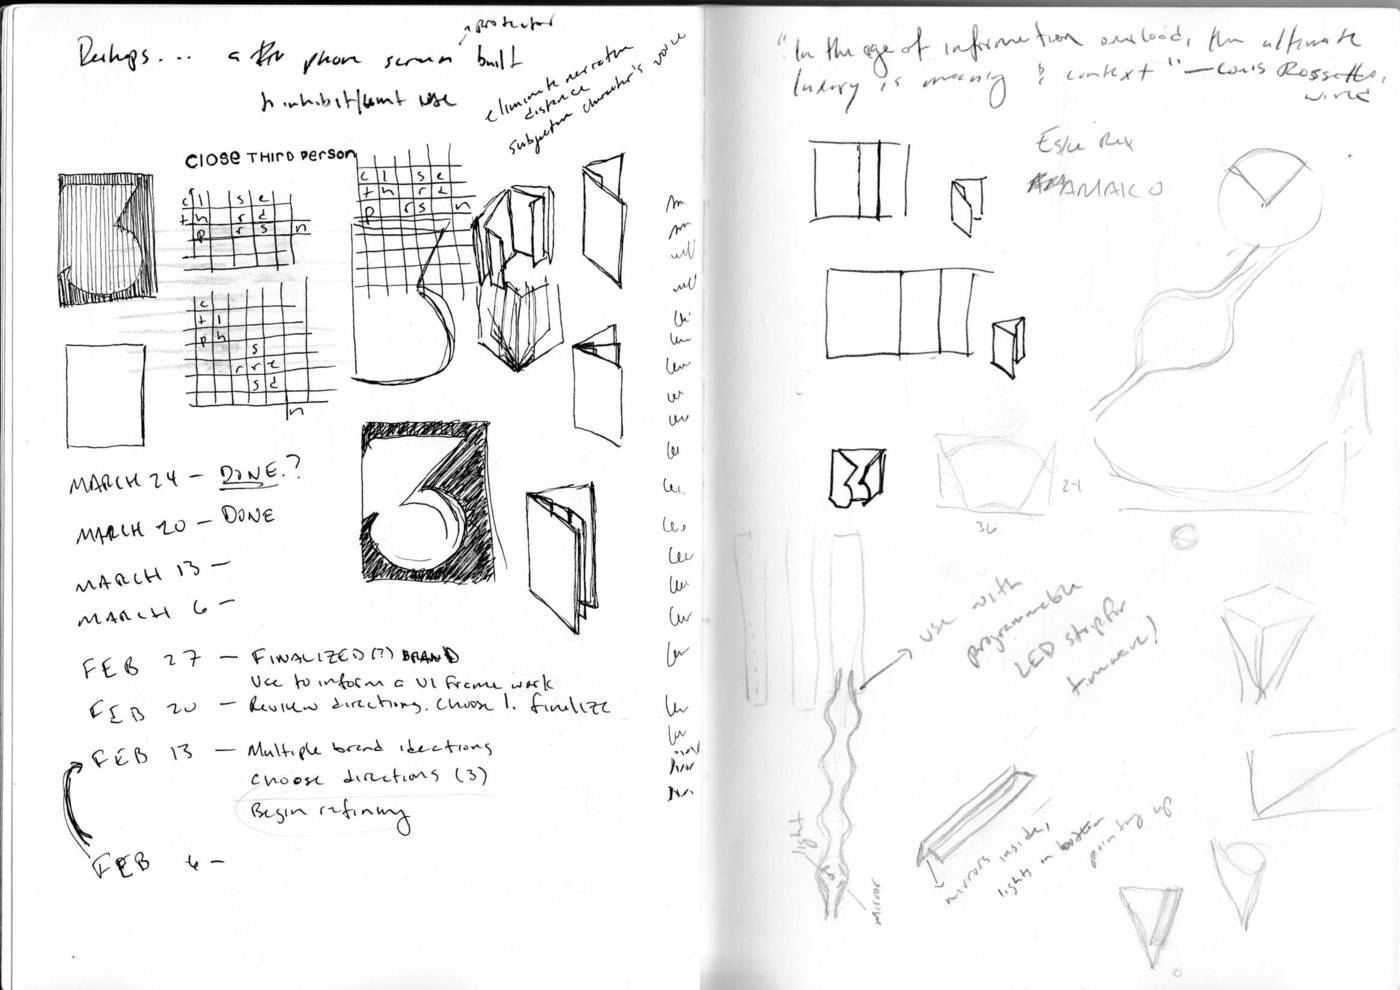 Perhaps... a phone screen protector built
to inhibit/limit use
eliminate narrative
distance
subjective character's voice
CLOSE THIRD PERSON
c l s e
t h r d
p r s n
c l s e
t h r d
p r s n
c
t l
p h
s
r r e
s d
n
MARCH 24 - DONE.?
MARCH 20 - DONE
MARCH 13 -
MARCH 6 -
FEB 27 - FINALIZED(?) BRAND
Use to inform a UI Frame work
FEB 20 - Review directions. Choose 1. finalize
FEB 13 - Multiple brand ideations
choose directions (3)
Begin refining
FEB 6 -
"In the age of information overload, the ultimate
luxury is meaning & context" — Louis Rossetto,
wired
Eske Rex
AMAICO
24
36
use with
programmable
LED strip for
light
mirror
mirrors inside,
lights on bottom
pointing up